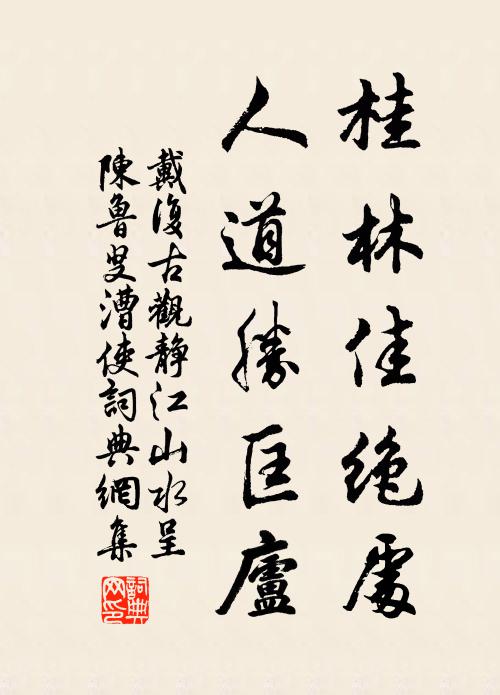 桂林佳絶處
人道勝匡廬
戴復古觀靜江山水呈
陳魯叟漕使詞典網集
詞典網印